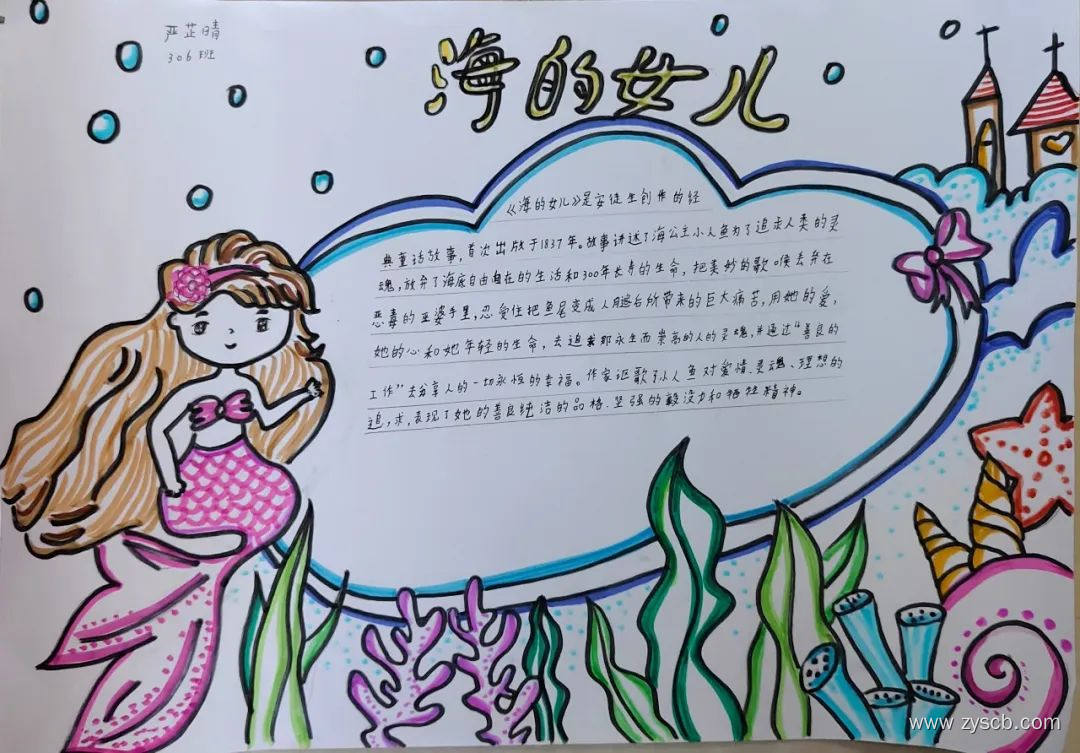 严芷晴
306班
海的女儿
《海的女儿》是安徒生创作的经
典童话故事,首次出版于1837年。故事讲述了海公主小人鱼为了追求人类的灵
魂,放弃了海底自由自在的生活和300年长寿的生命,把美妙的歌喉丢弃在
恶毒的巫婆手里,忍受住把鱼尾变成人腿后所带来的巨大痛苦,用她的爱,
她的心和她年轻的生命,去追求那永生而崇高的人的灵魂,并通过“善良的
工作”去分享人的一切永恒的幸福。作家讴歌了小人鱼对爱情、灵魂、理想的
追求,表现了她的善良纯洁的品格、坚强的毅力和牺牲精神。
www.zyscb.com